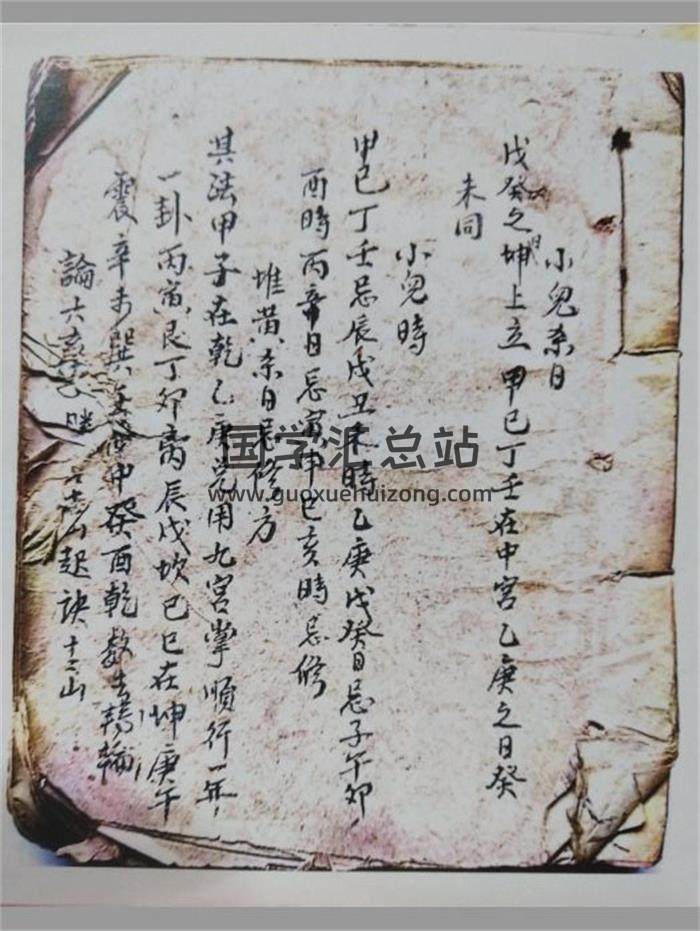 小兒杀日
戊癸之日坤上立甲巳丁壬在中宫乙庚之日癸
未同
小兒時
甲巳丁壬忌辰戌丑未時乙庚戊癸日忌子午卯
酉時丙辛日忌寅申巳亥時忌修
堆黄杀日忌修方
其法甲子在乾乙丑兑用九宫掌順行一年
一卦丙寅艮丁卯离辰戊坎巳巳在坤庚午
震辛未巽中癸酉乾数去轉輪
論六起訣十二山
国学汇总站
www.guoxuehuizong.com